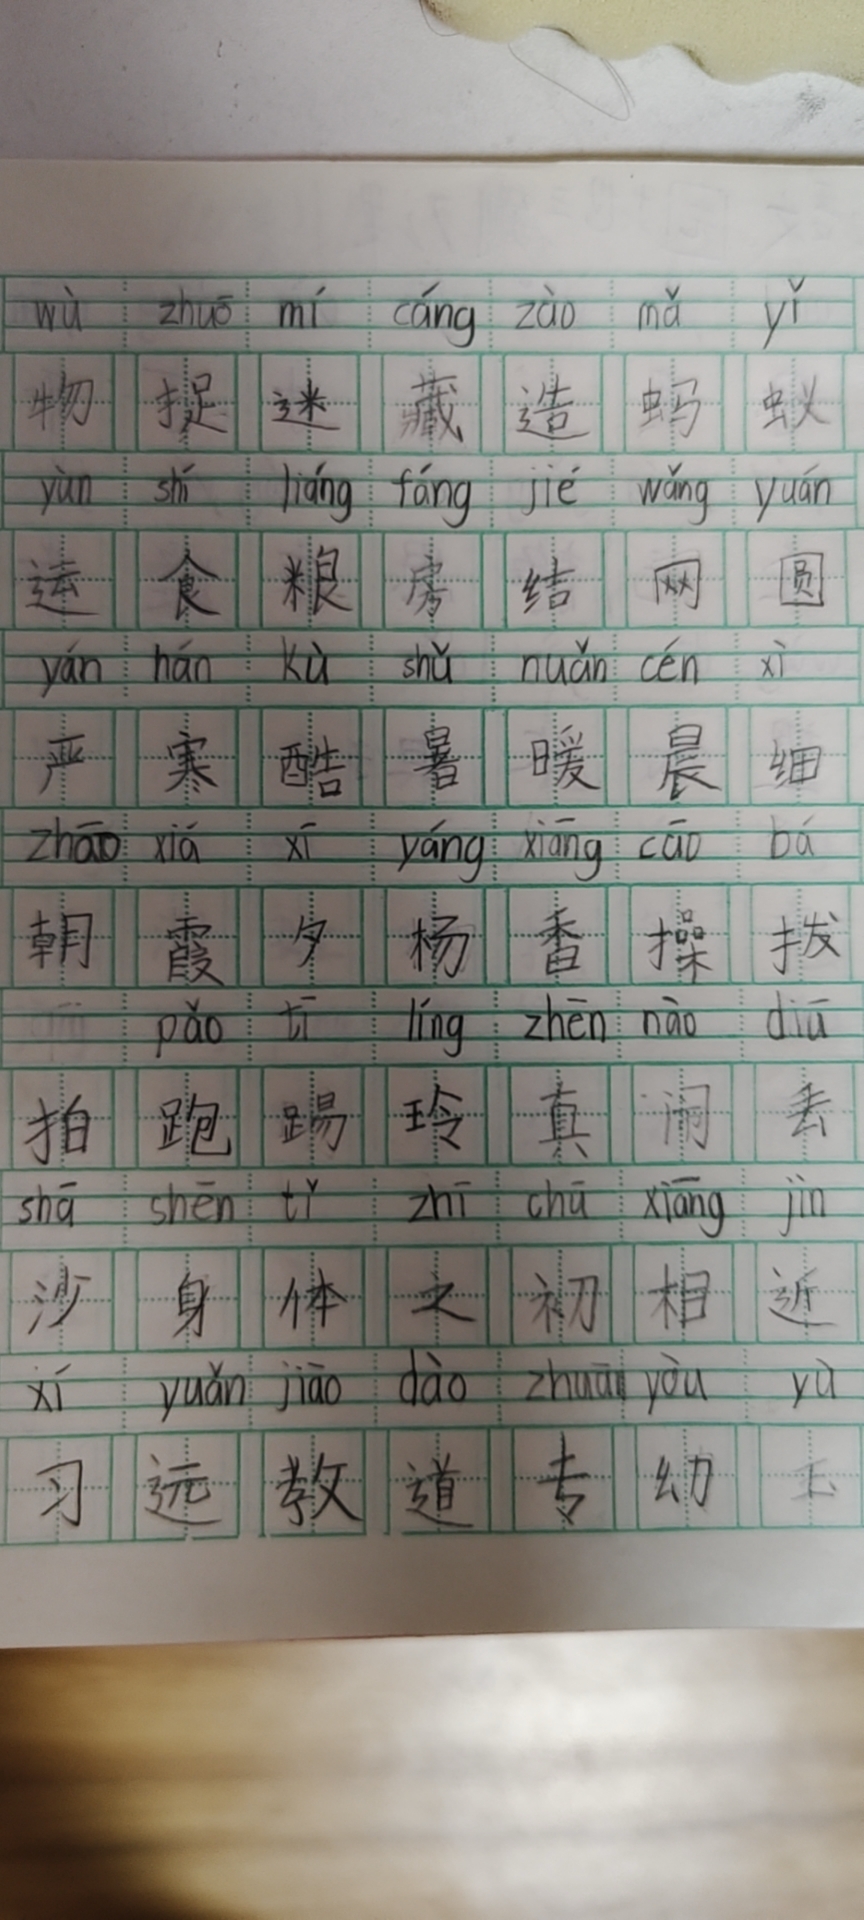 wù zhuō mí cáng zào mǎ yǐ
物 捉 迷 藏 造 蚂 蚁
yùn shí liáng fáng jié wǎng yuán
运 食 粮 房 结 网 圆
yán hán kù shǔ nuǎn cén xì
严 寒 酷 暑 暖 晨 细
zhāo xiá xī yáng xiāng cāo bá
朝 霞 夕 杨 香 操 拔
pǎo tī líng zhēn nào diū
拍 跑 踢 玲 真 闹 丢
shā shēn tǐ zhī chū xiāng jìn
沙 身 体 之 初 相 近
xí yuǎn jiāo dào zhuān yòu yù
习 远 教 道 专 幼